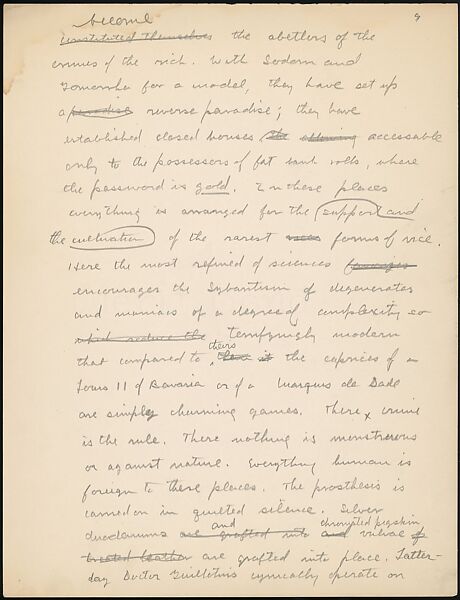 9
become
constituted themselves the abettors of the
ennuies of the rich. With Sodom and
Gomorrha for a model, they have set up
a paradise reverse paradise; they have
established closed houses allowing accessable
only to the possessors of fat bank rolls, where
the password is gold. In these places
everything is arranged for the support and
the cultivation of the rarest vices forms of vice.
Here the most refined of sciences
encourages the Sybaritism of degenerates
and maniacs of a degree of complexity so
which reduce the terrifyingly modern
theirs
that compared to, the caprices of a
Louis II of Bavaria or of a Marquis de Sade
are simply charming games. There, crime
is the rule. There nothing is monstrerous
or against nature. Everything human is
foreign to these places. The prosthesis is
carried on in quilted silence. Silver
and chrompted pigskin
duodenums are grafted into and vulvae of
treated leather are grafted into place. Latter-
day Doctor Guillotins cynically operate on